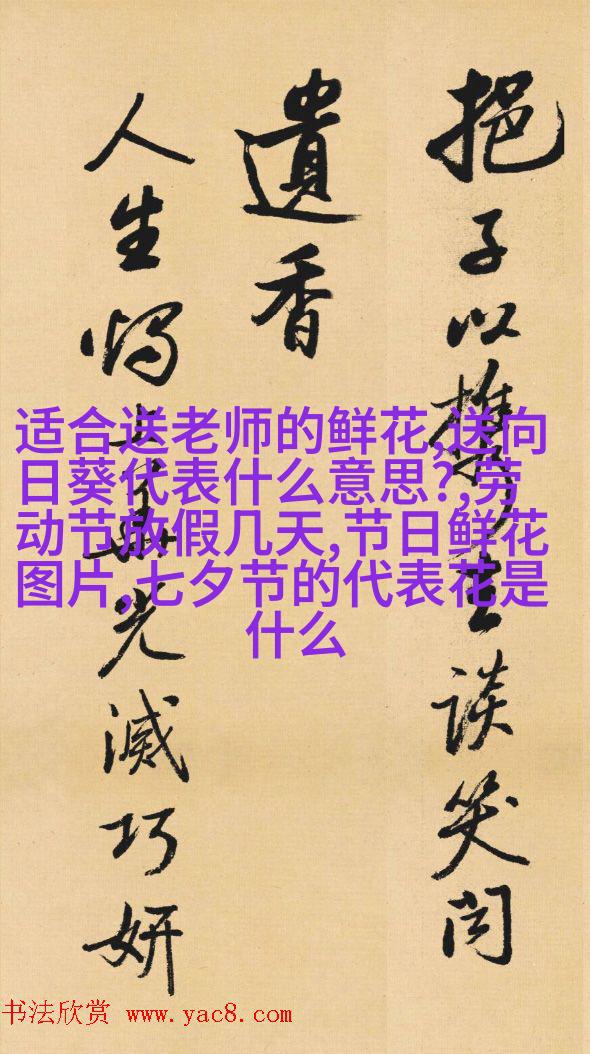 挹子以生談笑
遺香
人生光滅巧妍
适合送老师的鲜花,送向
日葵代表什么意思?,劳
动节放假几天,节日鲜花
图片,七夕节的代表花是
什么
书法欣赏 www.yac8.com